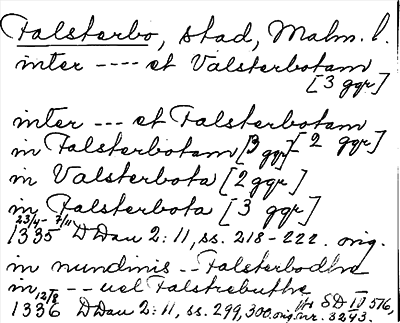 Falsterbo, stad, Malm. l.
inter ---- et Valsterbotam
[3 ggr]
inter --- et Falsterbotam
[2 ggr]
in Falsterbotam [3 ggr]
in Valsterbota [2 ggr]
in Falsterbota [3 ggr]
23/4 - 7/11
1335 DDan 2:11, ss. 218-222. orig.
in nundinis -- Falsterbodhe
in -- uel Falstrebuthe
12/8
1336 DDan 2:11, ss. 299, 300. orig. SD IV 576,
nr. 3243.